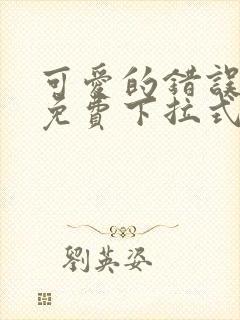 可愛的錯誤
免費下拉式
劉英姿